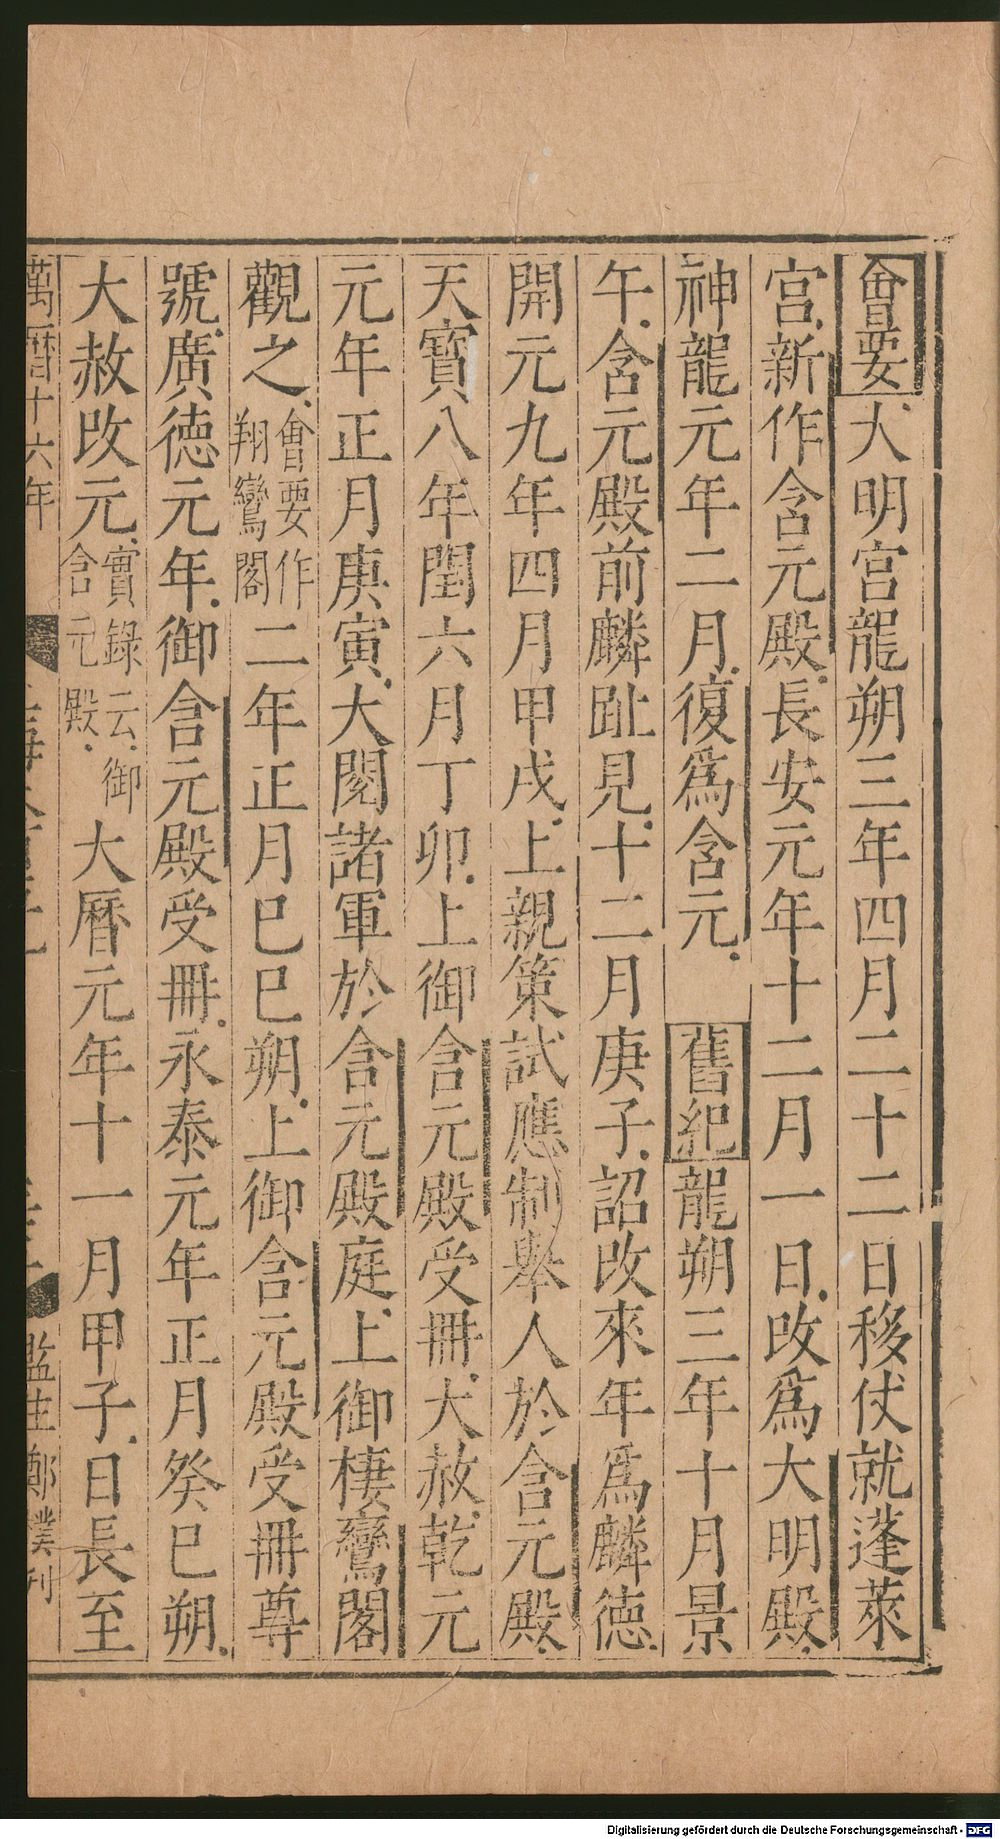 會要大明宮龍朔三年四月二十二日移仗就蓬萊
宮新作含元殿長安元年十二月一日改為大明殿
神龍元年二月復為含元 舊紀龍朔三年十月景
午含元殿前麟趾見十二月庚子詔改來年為麟德
開元九年四月甲戌上親策試應制舉人於含元殿
天寶八年閏六月丁卯上御含元殿受冊大赦乾元
元年正月庚寅大閱諸軍於含元殿庭上御棲鸞閣
觀之會要作翔鸞閣二年正月巳巳朔上御含元殿受冊尊
號廣德元年御含元殿受冊永泰元年正月癸巳朔
大赦改元實錄云御含元殿大曆元年十一月甲子日長至
萬曆十六年
監生鄭濮刊
Digitalisierung gefördert durch die Deutsche Forschungsgemeinschaft - DFG